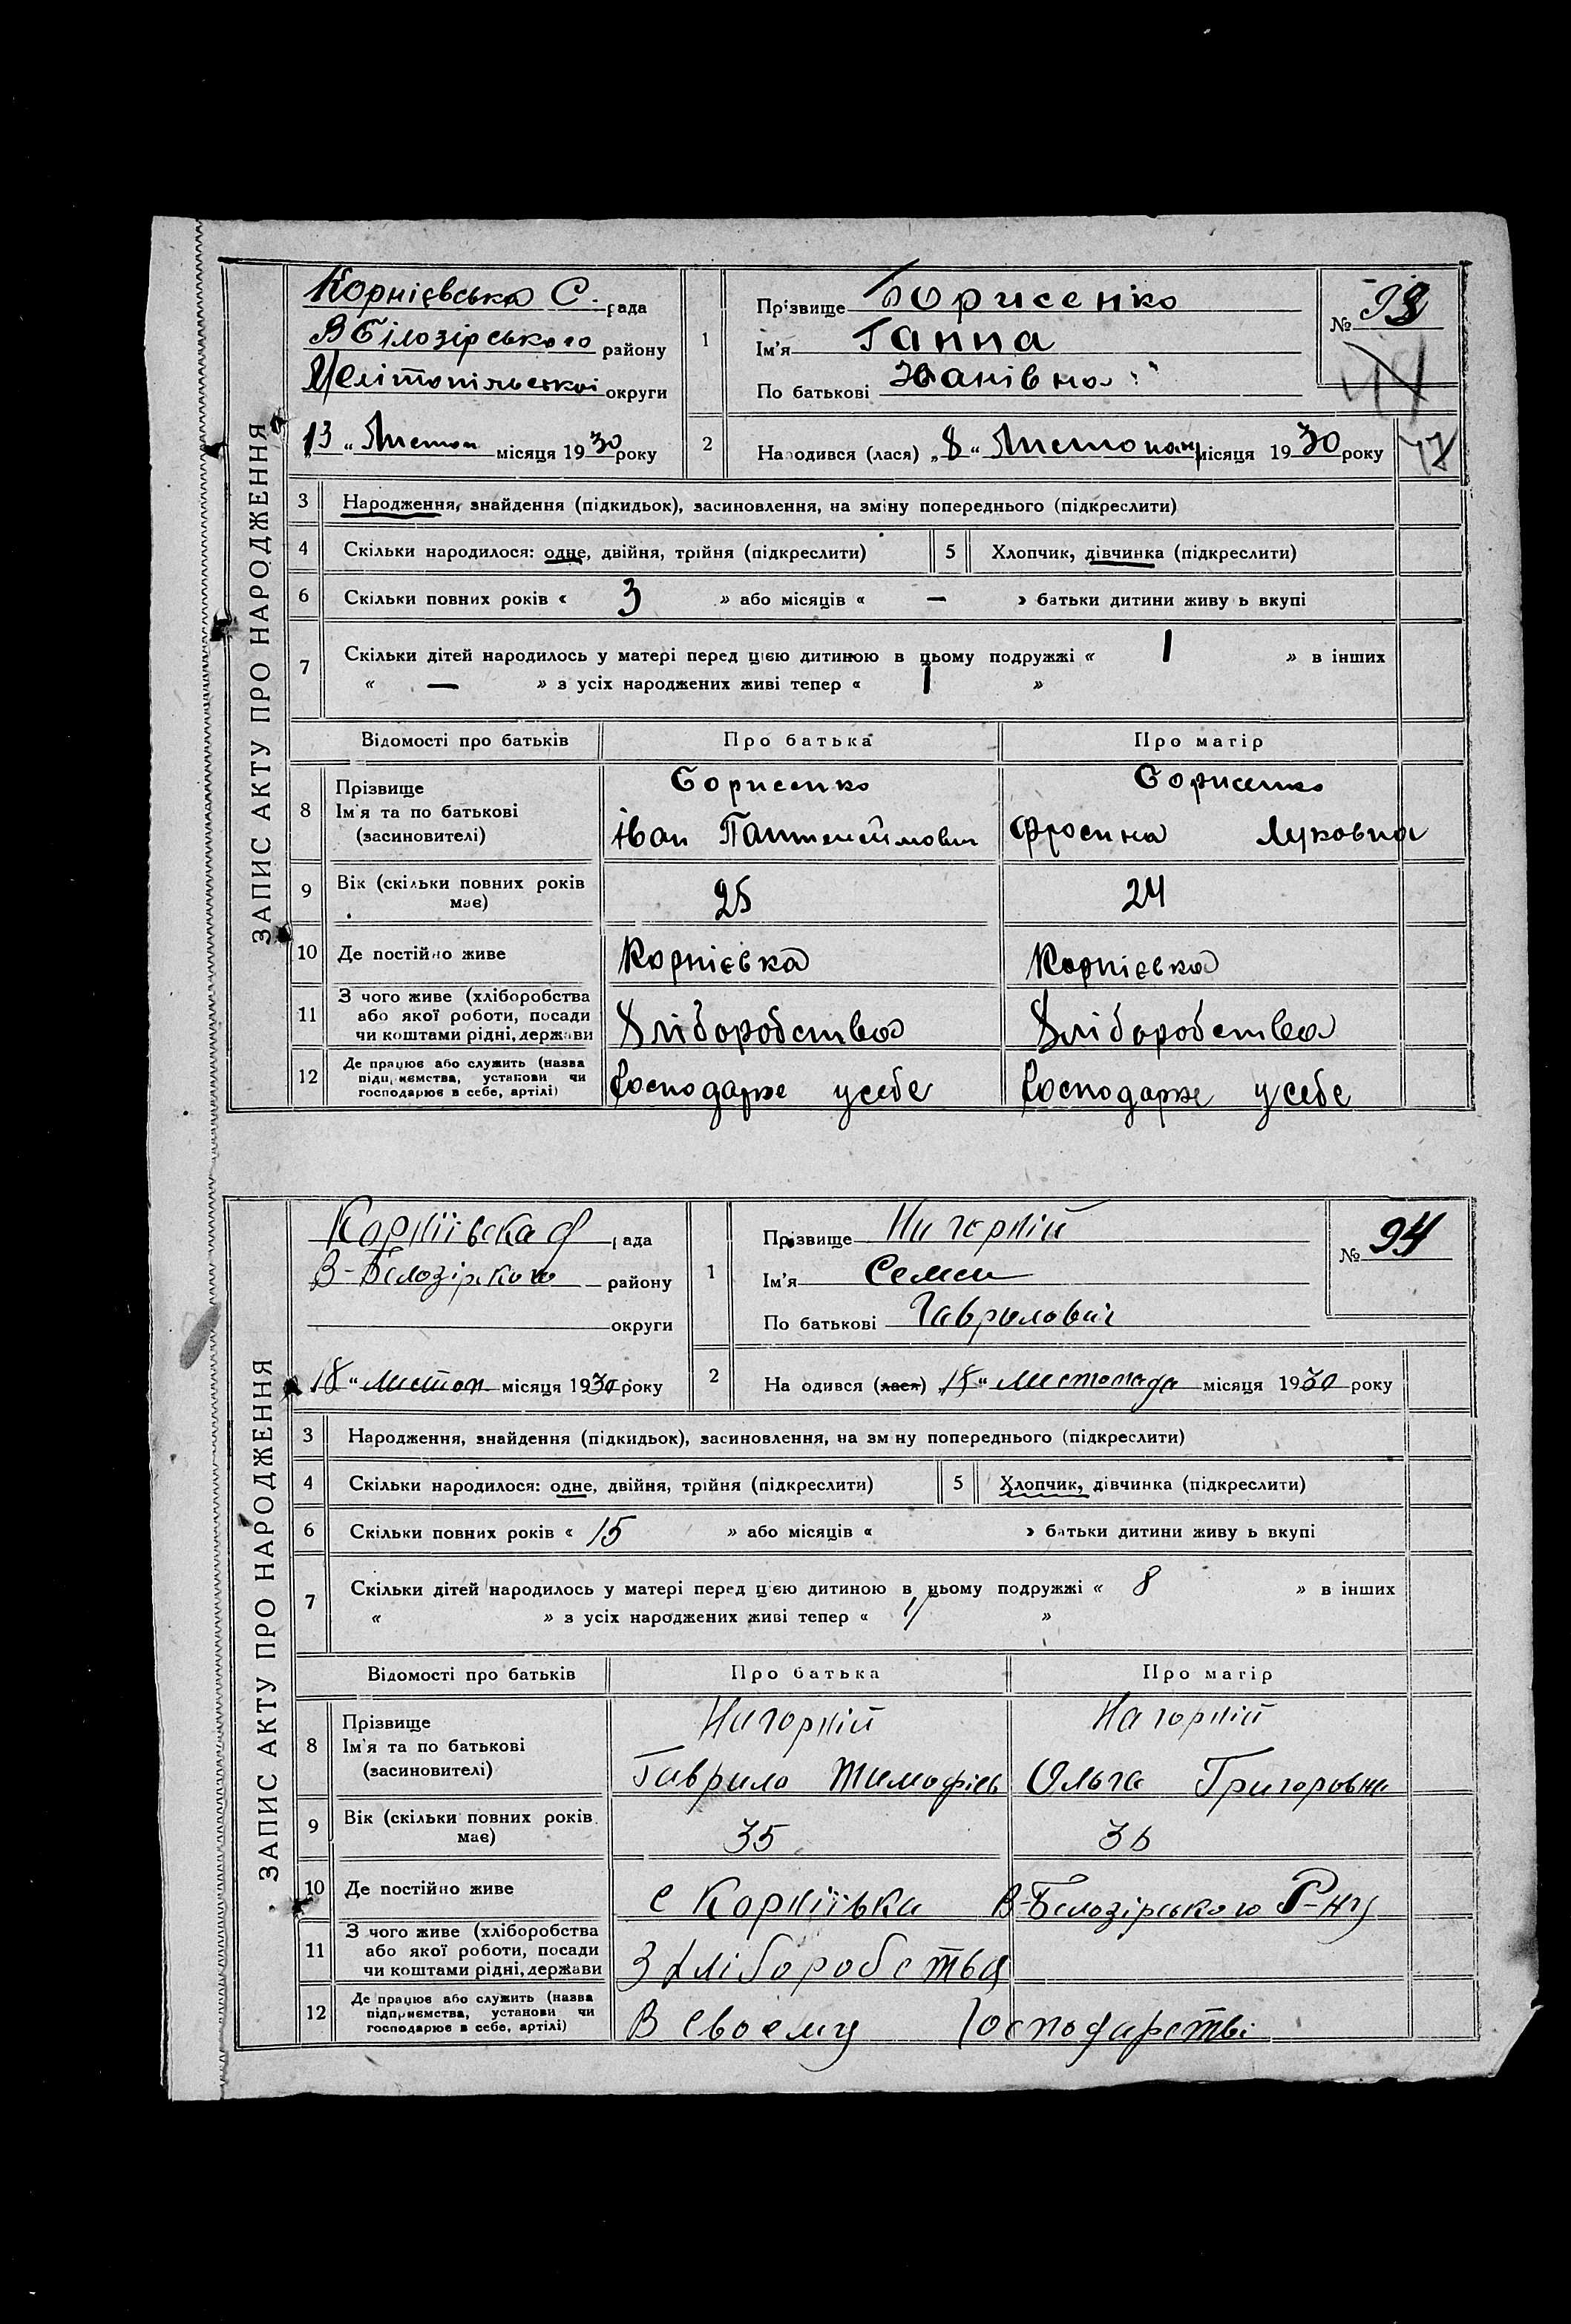 ЗАПИС АКТУ ПРО НАРОДЖЕННЯ
Корнієвська С. рада
В Білозірського району
Мелітопільської округи
13 " Листоп місяця 1930 року
1 Прізвище Борисенко
Ім'я Ганна
По батькові Іванівна
№ 93
2 Народився (лася) „8" Листопад місяця 1930 року
3 Народження, знайдення (підкидьок), засиновлення, на зміну попереднього (підкреслити)
4 Скільки народилося: одне, двійня, трійня (підкреслити) 5 Хлопчик, дівчинка (підкреслити)
6 Скільки повних років « 3 » або місяців « — » батьки дитини живу ь вкупі
7 Скільки дітей народилось у матері перед цією дитиною в цьому подружжі « 1 » в інших
« — » з усіх народжених живі тепер « 1 »
Відомості про батьків Про батька Про матір
8 Прізвище Борисенко Борисенко
Ім'я та по батькові Іван Фросина Луковна
(засиновителі)
9 Вік (скільки повних років має) 25 24
10 Де постійно живе Корнієвка Корнієвка
11 З чого живе (хліборобства
або якої роботи, посади Хліборобства Хліборобства
чи коштами рідні, держави
12 Де працює або служить (назва
підприємства, установи чи Господарже усебе Господарже усебе
господарює в себе, артілі)
ЗАПИС АКТУ ПРО НАРОДЖЕННЯ
Корніівска рада
В-Белозірского району
округи
18 " Листоп місяця 1930 року
1 Прізвище Нагорній
Ім'я Семен
По батькові Гаврилович
№ 94
2 На одився (лася) „15" Листопада місяця 1930 року
3 Народження, знайдення (підкидьок), засиновлення, на зм ну попереднього (підкреслити)
4 Скільки народилося: одне, двійня, трійня (підкреслити) 5 Хлопчик, дівчинка (підкреслити)
6 Скільки повних років « 15 » або місяців « » батьки дитини живу ь вкупі
7 Скільки дітей народилось у матері перед цією дитиною в цьому подружжі « 8 » в інших
« » з усіх народжених живі тепер « »
Відомості про батьків Про батька Про матір
8 Прізвище Нагорній Нагорній
Ім'я та по батькові Гаврило Тимофієв Ольга Григоровна
(засиновителі)
9 Вік (скільки повних років має) 35
10 Де постійно живе с Корніівка В-Белозірського Р-ну
11 З чого живе (хліборобства
або якої роботи, посади З хліборобства
чи коштами рідні, держави
12 Де працює або служить (назва
підприємства, установи чи В своему господарстві
господарює в себе, артілі)